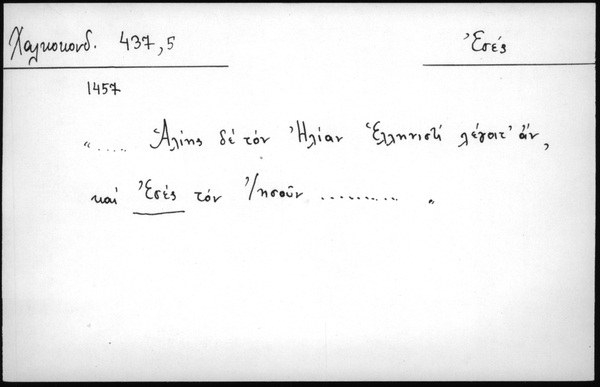 Χαλκοκονδ. 437,5
Ἐσές
1457
"..... Ἀλίης δέ τόν Ἠλίαν Ἑλληνιστί λέγοιτ' ἄν,
καί Ἐσές τόν Ἰησοῦν .......... "